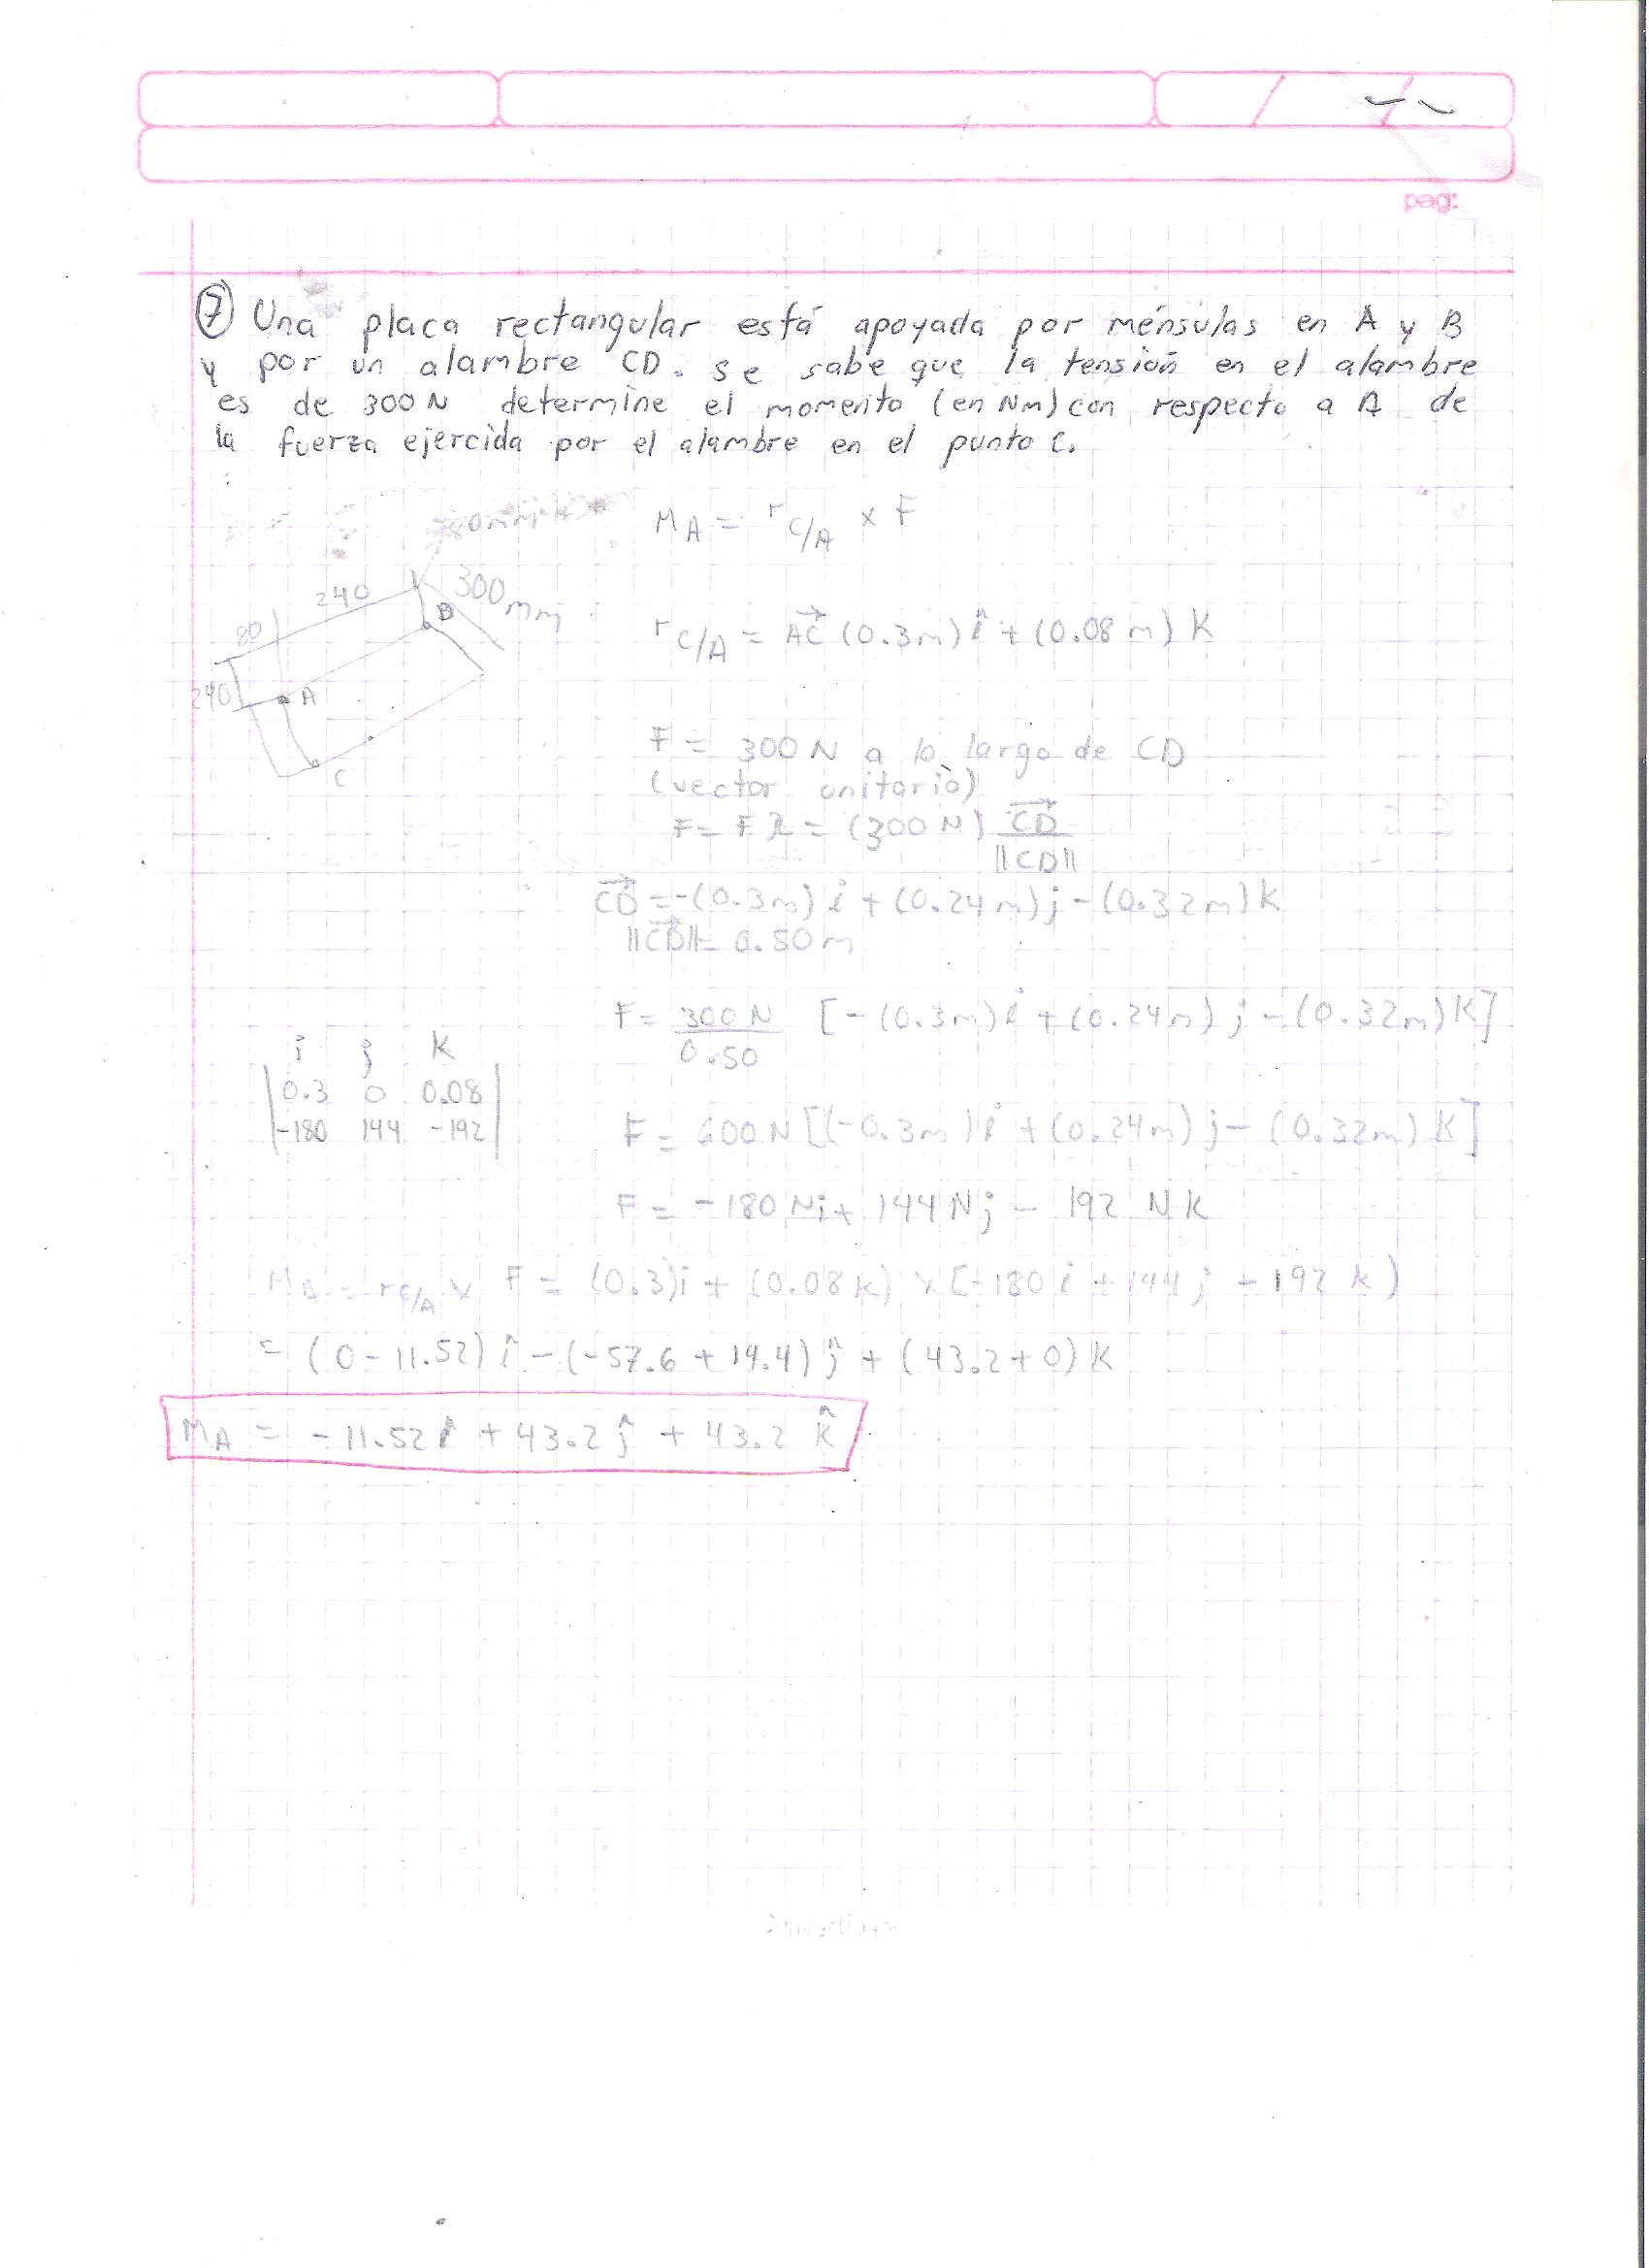 pag:
⑦ Una placa rectangular está apoyada por ménsulas en A y B
y por un alambre CD. se sabe que la tensión en el alambre
es de 300 N determine el momento (en Nm) con respecto a A de
la fuerza ejercida por el alambre en el punto C.
M_A = r_C/A × F
240 300 mm
80 B
240 A
C
r_C/A = AC (0.3m) î + (0.08 m) K
F = 300 N a lo largo de CD
(vector unitario)
F = F λ = (300 N) CD / ||CD||
CD = -(0.3m) i + (0.24m) j - (0.32m) K
||CD|| = 0.50m
F = 300 N / 0.50 [-(0.3m) i + (0.24m) j - (0.32m) K]
i j K
|0.3 0 0.08|
|-180 144 -192|
F = 600 N [(-0.3m) i + (0.24m) j - (0.32m) K]
F = -180 Ni + 144 Nj - 192 NK
M_A = r_C/A × F = (0.3)i + (0.08k) × [-180 i + 144 j - 192 k)
= (0 - 11.52) î - (-57.6 + 14.4) ĵ + (43.2 + 0) K
M_A = -11.52 i + 43.2 ĵ + 43.2 k̂